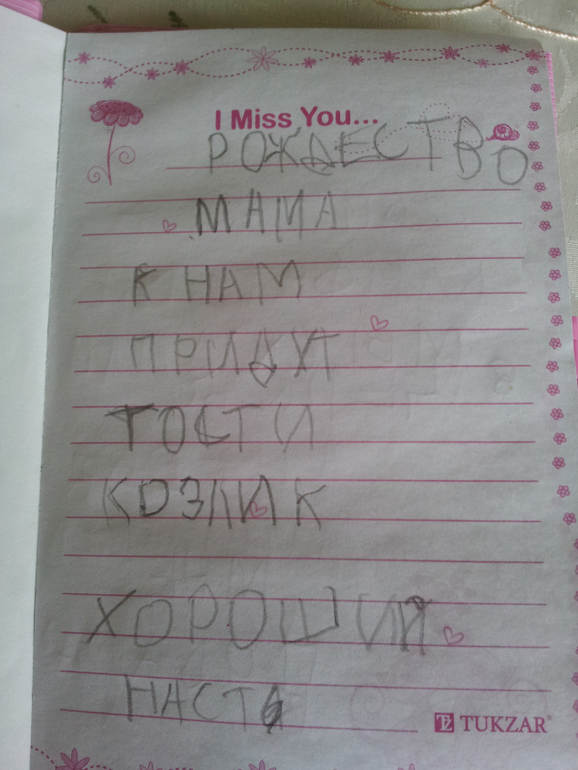 I Miss You...
РОЖДЕСТВО
МАМА
К НАМ
ПРИДУТ
ТОСТИ
КОЗЛИК
ХОРОШИЙ
НАСТЯ
TUKZAR